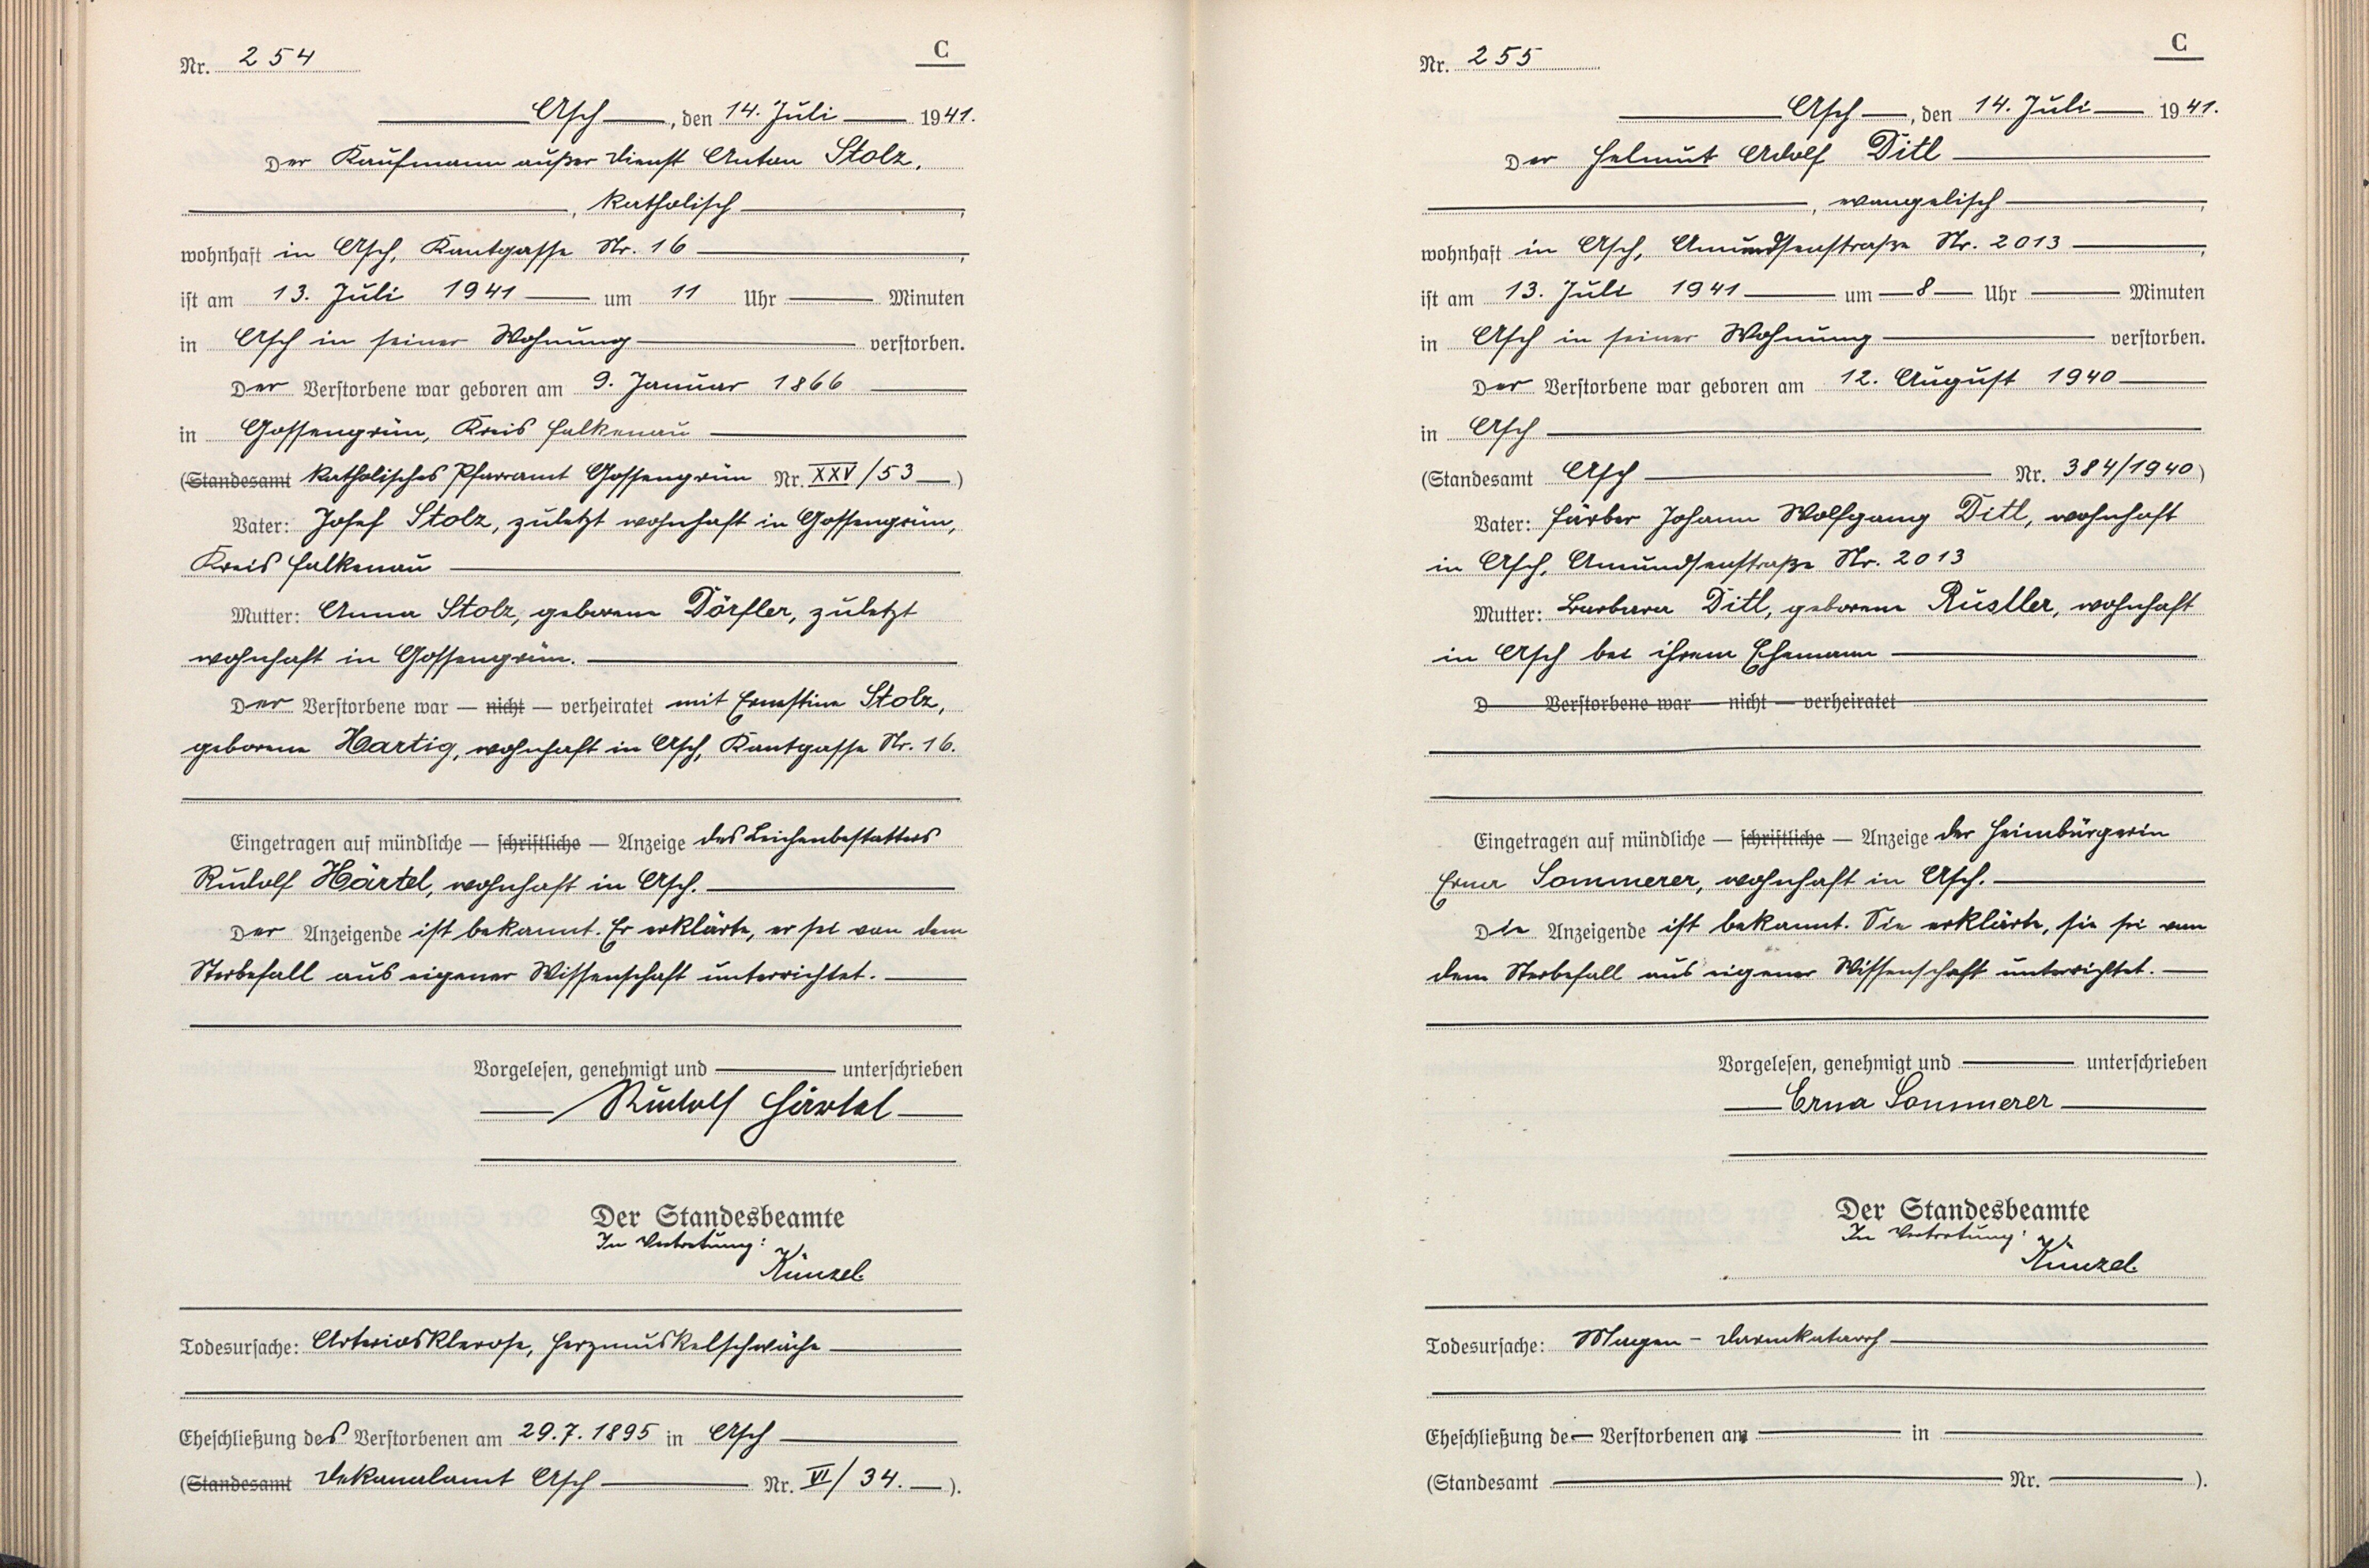 Nr. 254
C
Asch, den 14. Juli 1941.
Der Kaufmann außer Dienst Anton Stolz,
, katholisch,
wohnhaft in Asch, Kantgasse Nr. 16,
ist am 13. Juli 1941 um 11 Uhr Minuten
in Asch in seiner Wohnung verstorben.
Der Verstorbene war geboren am 9. Januar 1866
in Gossengrün, Kreis Falkenau
(Standesamt katholisches Pfarramt Gossengrün Nr. XXV/53)
Vater: Josef Stolz, zuletzt wohnhaft in Gossengrün,
Kreis Falkenau
Mutter: Anna Stolz, geborene Dörfler, zuletzt
wohnhaft in Gossengrün.
Der Verstorbene war — nicht — verheiratet mit Ernestine Stolz,
geborene Hartig, wohnhaft in Asch, Kantgasse Nr. 16.
Eingetragen auf mündliche — schriftliche — Anzeige des Leichenbestatters
Rudolf Härtel, wohnhaft in Asch.
Der Anzeigende ist bekannt. Er erklärte, er sei von dem
Sterbefall aus eigener Wissenschaft unterrichtet.
Vorgelesen, genehmigt und unterschrieben
Rudolf Härtel
Der Standesbeamte
In Vertretung:
Künzel.
Todesursache: Arteriosklerose, Herzmuskelschwäche
Eheschließung des Verstorbenen am 29.7.1895 in Asch
(Standesamt Dekanalamt Asch Nr. VI/34.).
Nr. 255
C
Asch, den 14. Juli 1941.
Der Helmut Adolf Ditl
, evangelisch,
wohnhaft in Asch, Amundsenstraße Nr. 2013,
ist am 13. Juli 1941 um 8 Uhr Minuten
in Asch in seiner Wohnung verstorben.
Der Verstorbene war geboren am 12. August 1940
in Asch
(Standesamt Asch Nr. 384/1940)
Vater: Färber Johann Wolfgang Ditl, wohnhaft
in Asch, Amundsenstraße Nr. 2013
Mutter: Barbara Ditl, geborene Rustler, wohnhaft
in Asch bei ihrem Ehemann
D Verstorbene war — nicht — verheiratet
Eingetragen auf mündliche — schriftliche — Anzeige der Heimbürgerin
Erna Sommerer, wohnhaft in Asch.
Die Anzeigende ist bekannt. Sie erklärte, sie sei von
dem Sterbefall aus eigener Wissenschaft unterrichtet.
Vorgelesen, genehmigt und unterschrieben
Erna Sommerer
Der Standesbeamte
In Vertretung:
Künzel.
Todesursache: Magen - Darmkatarrh
Eheschließung de Verstorbenen am in
(Standesamt Nr. ).